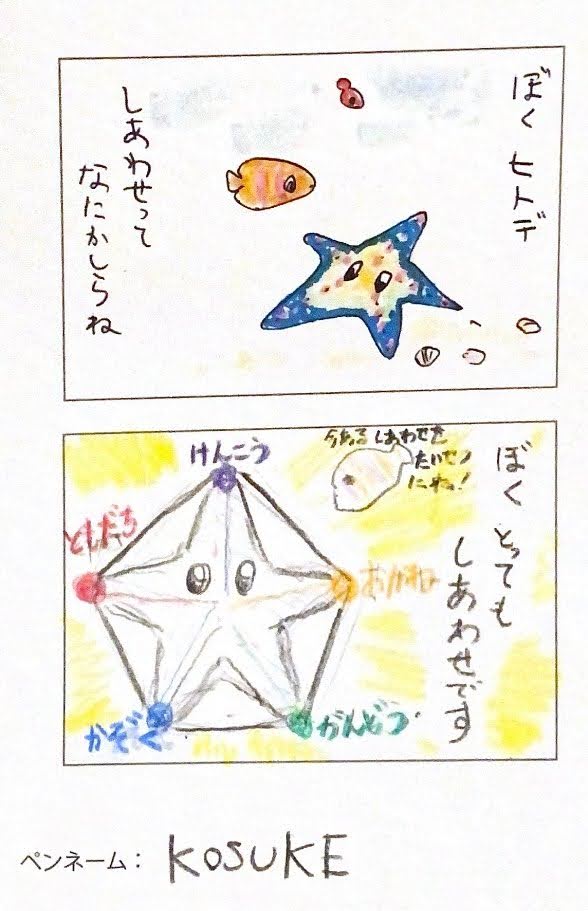 ぼく ヒトデ
しあわせって
なにかしらね
ぼく とっても
しあわせです
今あるしあわせを
たいせつ
にね!
けんこう
ともだち
おかね
かぞく
かんどう
ペンネーム: KOSUKE